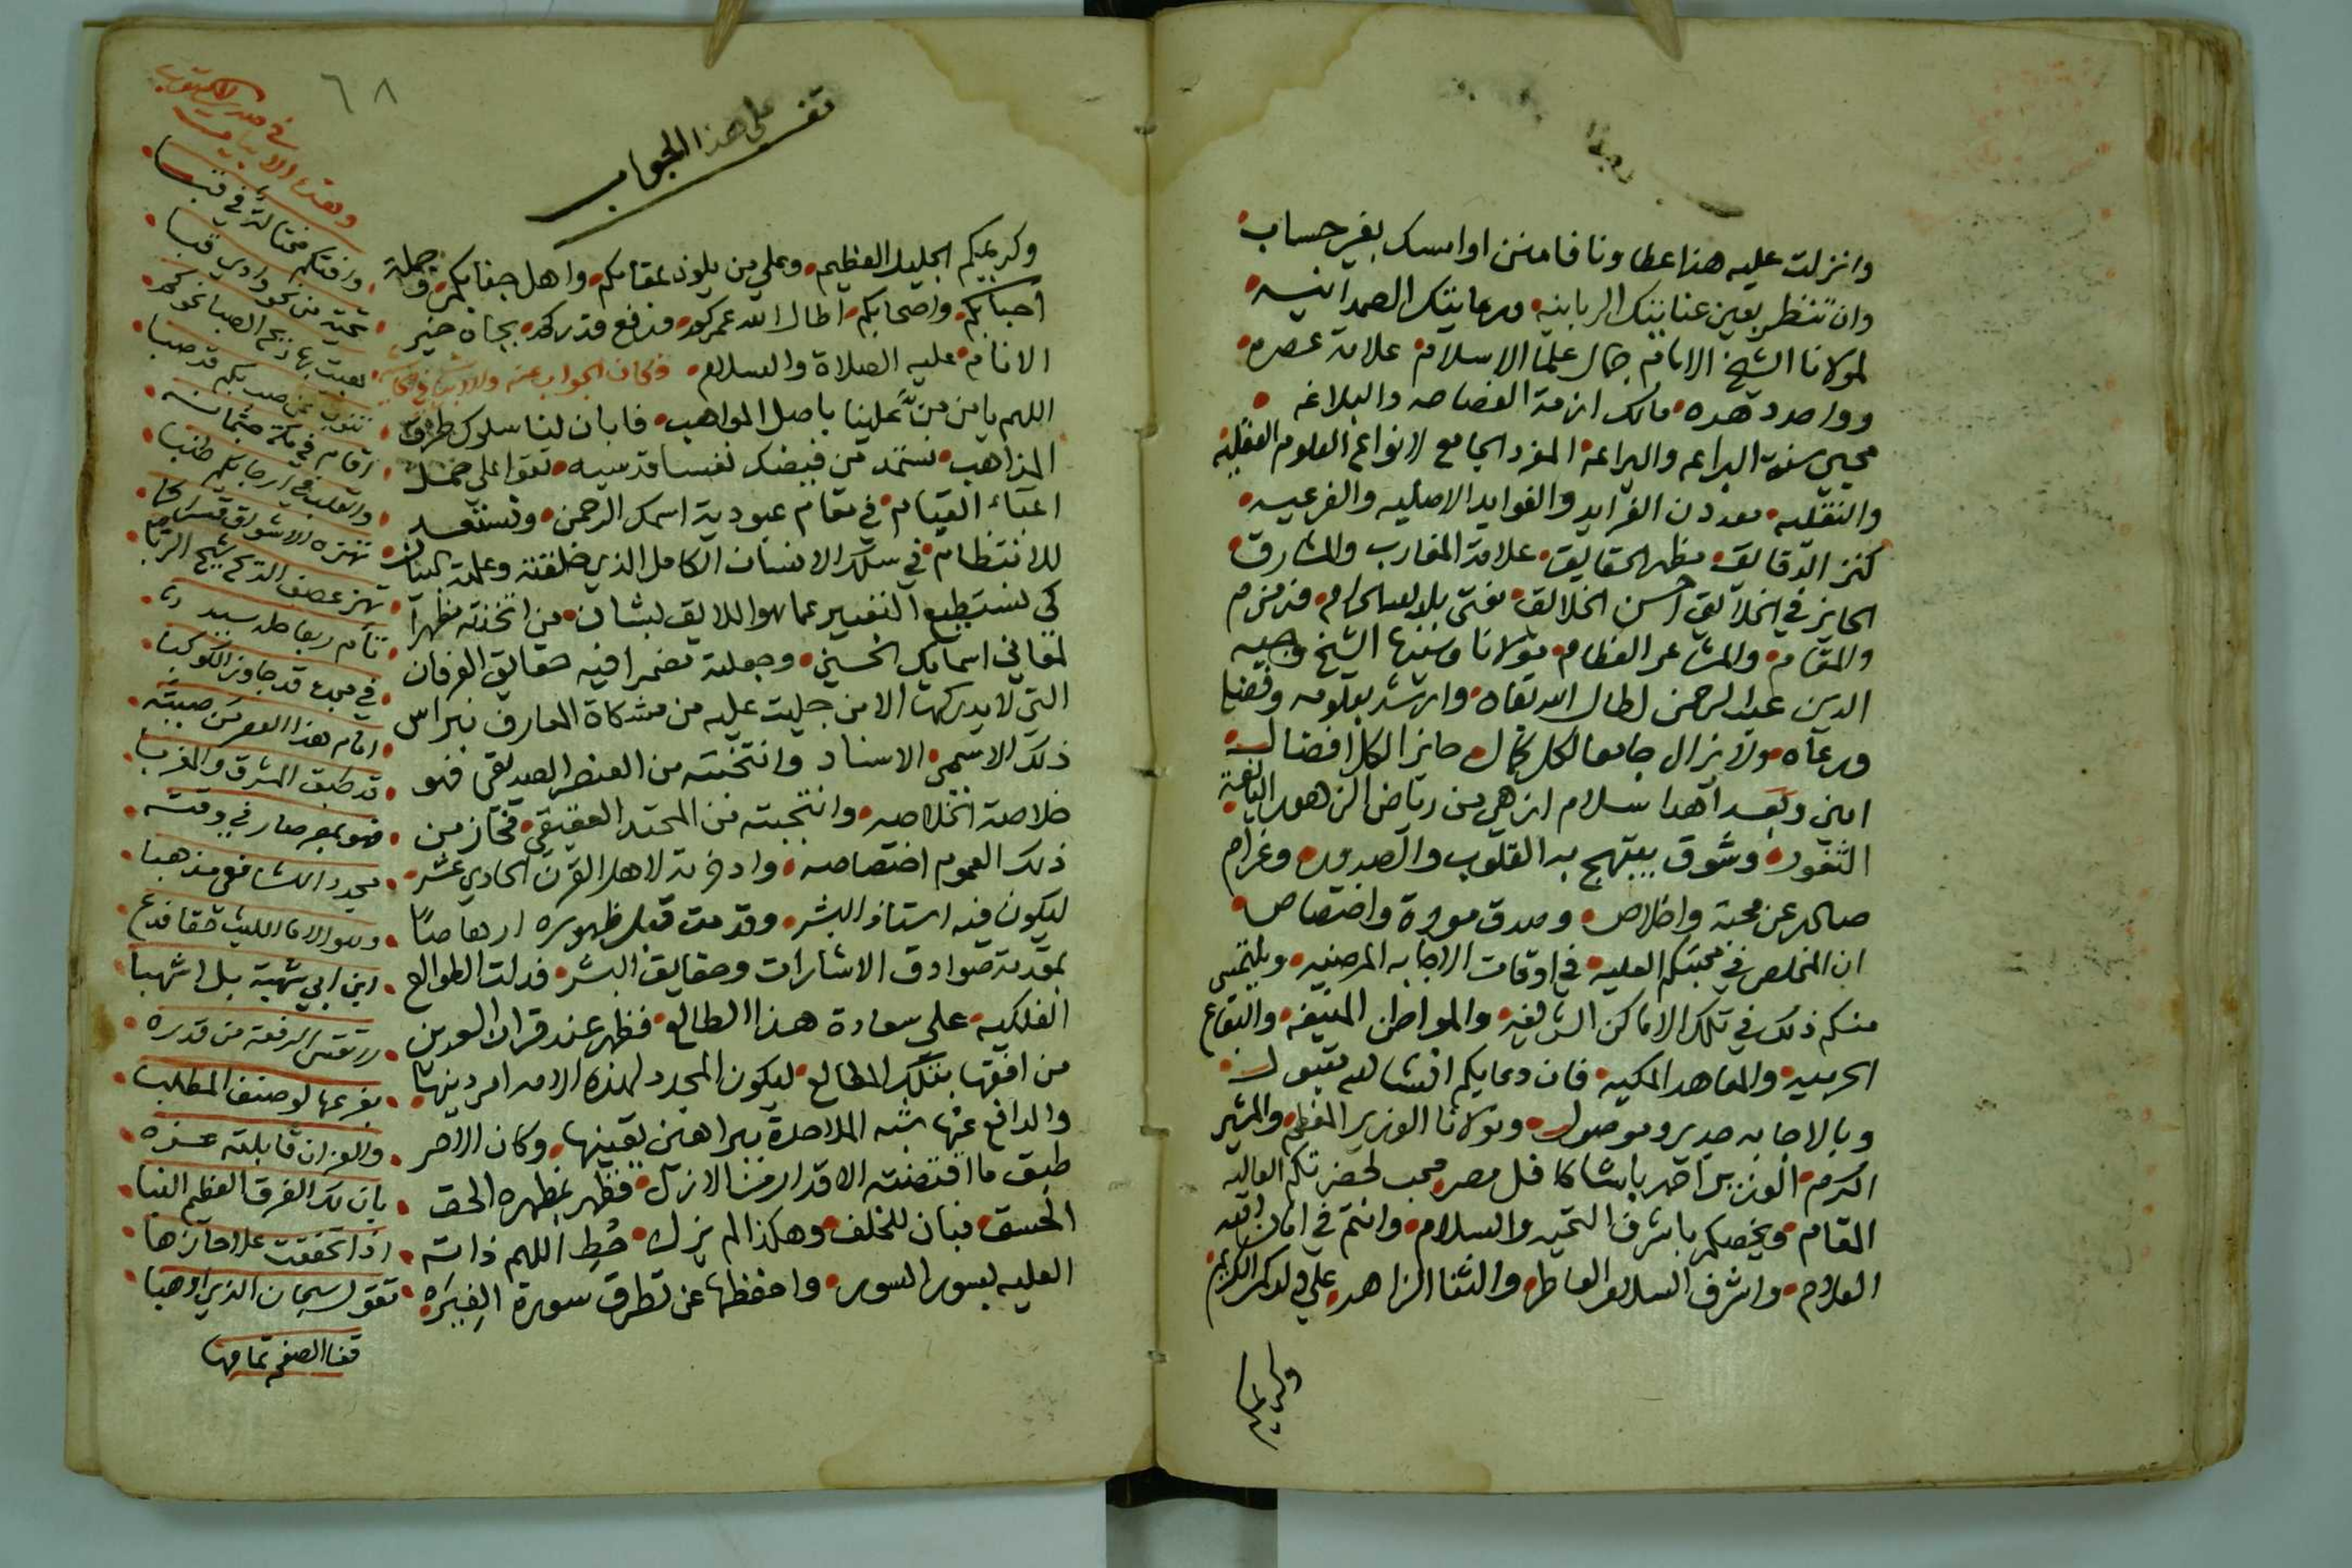 وانزلت عليه هذا عطاونا فامنن او امسك بغير حساب
وان تنظر بعين عنايتك الربانيه ورعايتك الصمدانيه
لمولانا الشيخ الامام جمال علما الاسلام علامة عصره
وواحد دهره مالك ازمة الفصاحه والبلاغه
محيي سنة البراعه والبراعة المفرد الجامع لانواع العلوم العقليه
والنقليه معدن الفرايد والفوايد الاصليه والفرعيه
كنز الدقايق مظهر الحقايق علامة المغارب والمشارق
الحايز في الخلايق احسن الخلائق مفتي بلد الله الحرام وزمزم
والمقام والمشاعر العظام مولانا وسيدنا الشيخ وجيه
الدين عبد الرحمن اطال الله بقاه وارشد بعلومه وفضله
ورعاه ولا يزال جامعا لكل كمال حايزا لكل افضال
امين وبعد اهدا سلام ازهى من رياض الزهور اليانعة
الثغور وشوق يبتهج به القلوب والصدور وغرام
صادر عن محبة واخلاص وصدق مودة واختصاص
ان المخلص في محبتكم العليه في اوقات الاجابه المرضيه ويلتمس
منكم ذلك في تلك الاماكن الشريفه والمواطن المنيفه والبقاع
الحرميه والمعاهد المكيه فان دعايكم انشا الله مقبول
وبالاجابه جدير وموصول ومولانا الوزير المعظم والمشير
المكرم الوزير احمد باشا كافل مصر محب لحضرتكم العاليه
المقام ويخصكم باشرف التحيه والسلام وانتم في امان الله
العلام واشرف السلام العاطر والثنا الزاهر على ولدكم الكريم
وكريمكم
٦٨
قف على هذا الجواب
وكريمكم الجليل العظيم وعلى من يلوذ بمقامكم واهل جنابكم وجملة
احبابكم واصحابكم اطال الله عمركم ورفع قدركم بجاه خير
الانام عليه الصلاة والسلام فكان الجواب عنه
اللهم يا من منّ علينا باصل المواهب فابان لنا سلوك طرق
المذاهب نستمد من فيضك نفسا قدسيه تقوا على حمل
اعباء القيام في مقام عبودية اسمك الرحمن وتستعد
للانتظام في سلك الانسان الكامل الذي خلقته وعلمته البيان
كي نستطيع التعبير عما هو اللايق بشان من اتخذته مظهرا
لمعاني اسمايك الحسنى وجعلته مضمرا فيه حقايق العرفان
التي لا يدركها الا من جليت عليه من مشكاة المعارف نبراس
ذلك الاسمى الاسناد وانتخبته من العنصر الصديقي فهو
خلاصة الخلاصه وانتجبته من المحتد العقيقي فحاز من
ذلك العموم اختصاصه وادخرته لاهل القرن الحادي عشر
ليكون فيه استاذ البشر وقدمت قبل ظهوره ارهاصًا
بمقدمة صوادق الاشارات وحقايق البشر فدلت الطوالع
الفلكيه على سعادة هذا الطالع فظهر عند قران السعدين
من افقها بتلك المطالع ليكون المجدد لهذه الامه امر دينها
والدافع عنها شبه الملاحدة ببراهين يقينها وكان الامر
طبق ما اقتضته الاقدار من الازل فظهر بمظهره الحق
الحسق فبان للخلف وهكذا لم يزل حُطِ اللهم ذاته
العليه بسور السور واحفظها عن تطرق سورة الغِيَره
في صدر المكتوب
وبعدها الابيات
وافتكم مختالة في قبا
تحية من نحو وادي قبا
بعثت بها ريح الصبا نحوكم
تنوب عن صب بكم قد صبا
اقام في مكة جثمانه
والقلب في ارجايكم طنبا
تهزه الاشواق
تهز عصف الريح شيح الربا
في مجده قد جاوز الكوكبا
امام هذا العصر من صيته
قد طبق المشرق والمغربا
فهو بمصر صار في وقته
مجدد الشافعي مذهبا
وهو الامام الليث حقا فدع
ابن ابي شهبة بل اشهبا
بفرعها لو صنف المطلبا
والعز ان قابلته عزه
بان لك الفرق العظيم النبا
اذا تحققت علا حازها
تقول سبحان الذي اوهبا
قفا الصفح تمامها